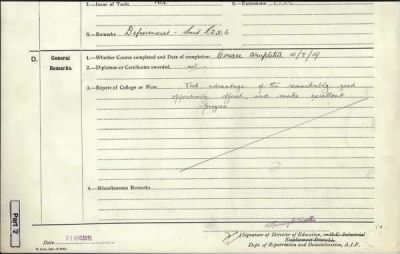 1.—Issue of Tools
9.—Remarks
D.
General
Remarks.
1.—Whether Course completed and Date of completion Course completed
2.—Diplomas or Certificates awarded
3.—Report of College or Firm Took advantage of the remarkably good
opportunity offered, and made excellent
progress
4.—Miscellaneous Remarks
Part 2
Date
Signature of Director of Education, or O.C. Industrial
Employment Branch),
Dept. of Repatriation and Demobilisation, A.I.F.